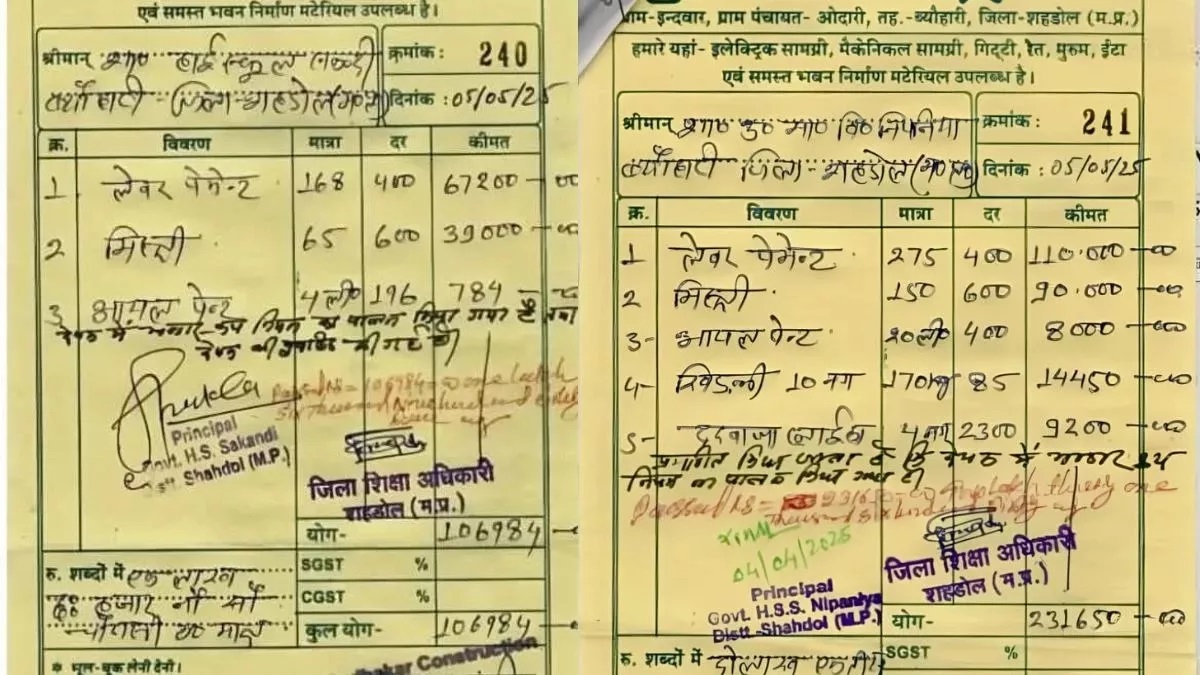 एवं समस्त भवन निर्माण मटेरियल उपलब्ध है।
श्रीमान् शा० हाई स्कूल सकन्दी
क्रमांक : 240
ब्यौहारी - जिला - शहडोल (म०प्र०)
दिनांक : 05/05/25
क्र. विवरण मात्रा दर कीमत
1 लेवर पेमेन्ट 168 400 67200-00
2 मिस्त्री 65 600 39000-00
3 आयल पेन्ट 4 ली० 196 784-00
Principal
Govt. H.S. Sakandi
Distt. Shahdol (M.P.)
Passed Rs = 106984=00 one lakh
जिला शिक्षा अधिकारी
शहडोल (म.प्र.)
योग- 106984-00
रु. शब्दों में एक लाख
SGST %
छः हजार नौ सौ
CGST %
चौरासी रु० मात्र
कुल योग- 106984-00
* भूल-चूक लेनी देनी।
Construction
ग्राम-इन्दवार, ग्राम पंचायत- ओदारी, तह.-ब्यौहारी, जिला-शहडोल (म.प्र.)
हमारे यहां- इलेक्ट्रिक सामग्री, मैकेनिकल सामग्री, गिट्टी, रेत, मुरुम, ईंटा
एवं समस्त भवन निर्माण मटेरियल उपलब्ध है।
श्रीमान् शा० उ० मा० वि० निपनिया
क्रमांक : 241
ब्यौहारी जिला - शहडोल (म०प्र०)
दिनांक : 05/05/25
क्र. विवरण मात्रा दर कीमत
1 लेवर पेमेन्ट 275 400 110.000-00
2 मिस्त्री 150 600 90.000-00
3- आयल पेन्ट 20 ली० 400 8000-00
4- खिड़की 10 नग 170 kg 85 14450-00
5- दरवाजा 4 नग 2300 9200-00
04/04/2025
Principal
Govt. H.S.S. Nipaniya
Distt.-Shahdol (M.P.)
जिला शिक्षा अधिकारी
शहडोल (म.प्र.)
योग- 231650-00
रु. शब्दों में दो लाख
SGST %